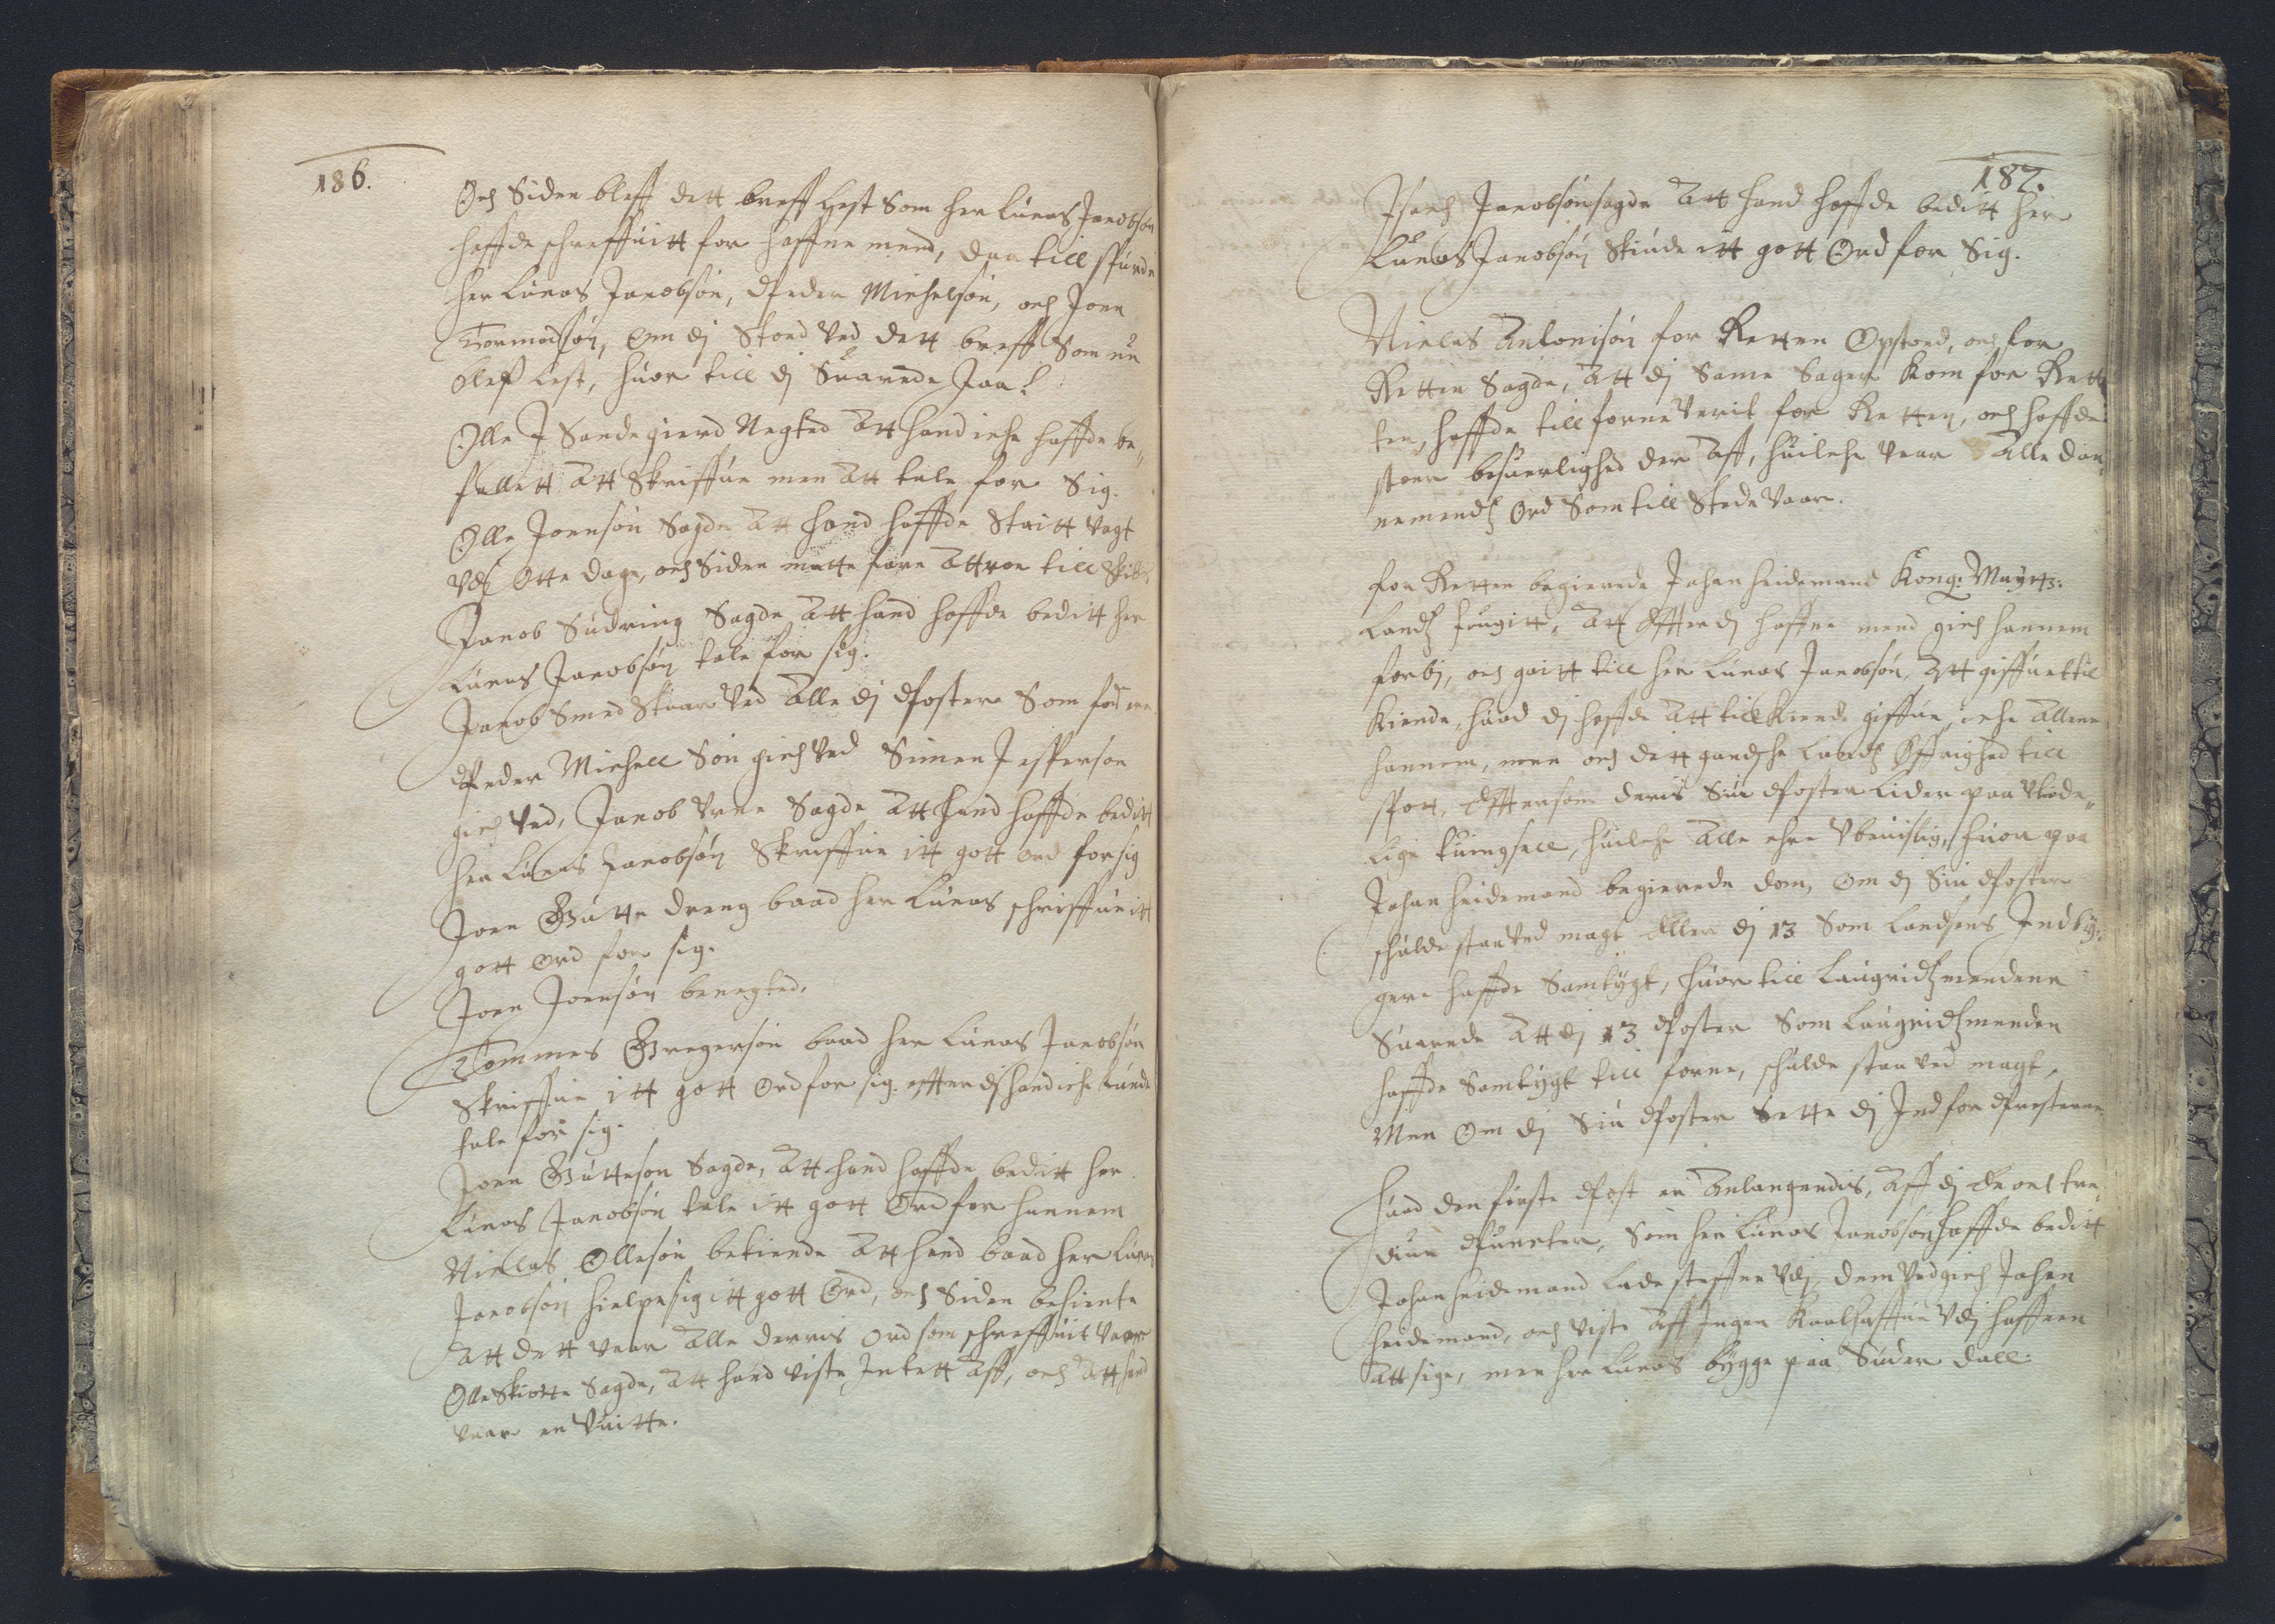 186.
Och Siden bleff dett breff Lest Som her Lucas Jacobsøn
haffde schreffuitt for haffne mend, daa till spurde
her Lucas Jacobsøn, Peder Michelsøn, och Joen
Tormodsøn, Om dj Stoed Ved dett breff Som nu
bleff Lest, huor till dj Suarede Jaa!
Olle J Sandegierd Negted Att hand iche haffde be„
fallett Att Skriffue men Att tale for Sig.
Olle Joensøn Sagde Att hand haffde Staitt Vagt
Vdj Otte dage, och Siden matte fare Att roe till
Jacob Sudring Sagde Att hand haffde beditt her
Lucas Jacobsøn tale for sig.
Jacob Smed Staar Ved Alle dj Poster Som
Peder Michell Søn gich Ved Simen Jespersøn
gich Ved, Jacob Vrne Sagde Att hand haffde beditt
her Lucas Jacobsøn Skreffue itt gott ord for sig
Joen Gutte dreng baad her Lucas schriffue itt
gott ord for sig.
Joen Joensøn benegted,
Tommes Gregersøn baad her Lucas Jacobsøn
Skriffue itt gott Ord for sig. effter dj hand iche kunde
tale for sig.
Joen Guttesøn Sagde, Att hand haffde beditt her
Lucas Jacobsøn tale itt gott Ord for hannem
Nielas Ollesøn bekiende Att hand baad her Lucas
Jacobsøn hielpe sig itt gott Ord, och Siden bekiente
Att dett Vaar Alle derris Ord som schreffuit Vaar
Olle Skiøtte Sagde, Att hand Viste Jntett Aff, och Att hand
Vaar en Vuitte.
187.
Isach Jacobsøn sagde Att hand haffde beditt her
Lucas Jacobsøn Skiude itt gott Ord for Sig.
Nielas Antonisøn for Retten Opstoed, och for
Retten Sagde, Att dj Same Sager kom for Rett
ten, haffde till forne Verit for Retten, och haffde
stoer besuerlighed der Aff, huilche Vaar Alle dan„
nemendz Ord Som till Stede Vaar.
for Retten begierede Johan heidemand Kong: Maytz:
Landz fougitt, Att Effter dj haffne mend gich hannem
forbj, och gaitt till her Lucas Jacobsøn, Att giffue till
kiende, huad dj haffde Att till kiende giffue, iche Allene
hannem, men och dett gandsche Landz Øffrighed till
spott, Effter som deris Siu Poster Lider paa Vlide„
lige tuingsell, huilche Alle ehre Vbeuislig, huor paa
Johan heidemand begierede dom, Om dj Siu Poster
schulde staa Ved magt Eller dj 13 Som Landsens Jndby„
gere haffde Samtygt, huor till Laugridzmendene
Suarede Att dj 13 Poster Som Laugridzmenden
haffde Samtygt till forne, schulde staa ved magt,
Men Om dj Siu Poster Sette dj Jnd for Presterne
Huad den første Post er Anlangendis, Aff dj En och tre„
diue Puncter, Som her Lucas Jacobsøn haffde beditt
Johan heidemand Lade steffne Vdj, dem Vedgich Johan
heidemand, och Viste Aff Jngen Kaalhaffue Vdj haffnen
Att sige, men her Lucas bygge paa Suder dall.